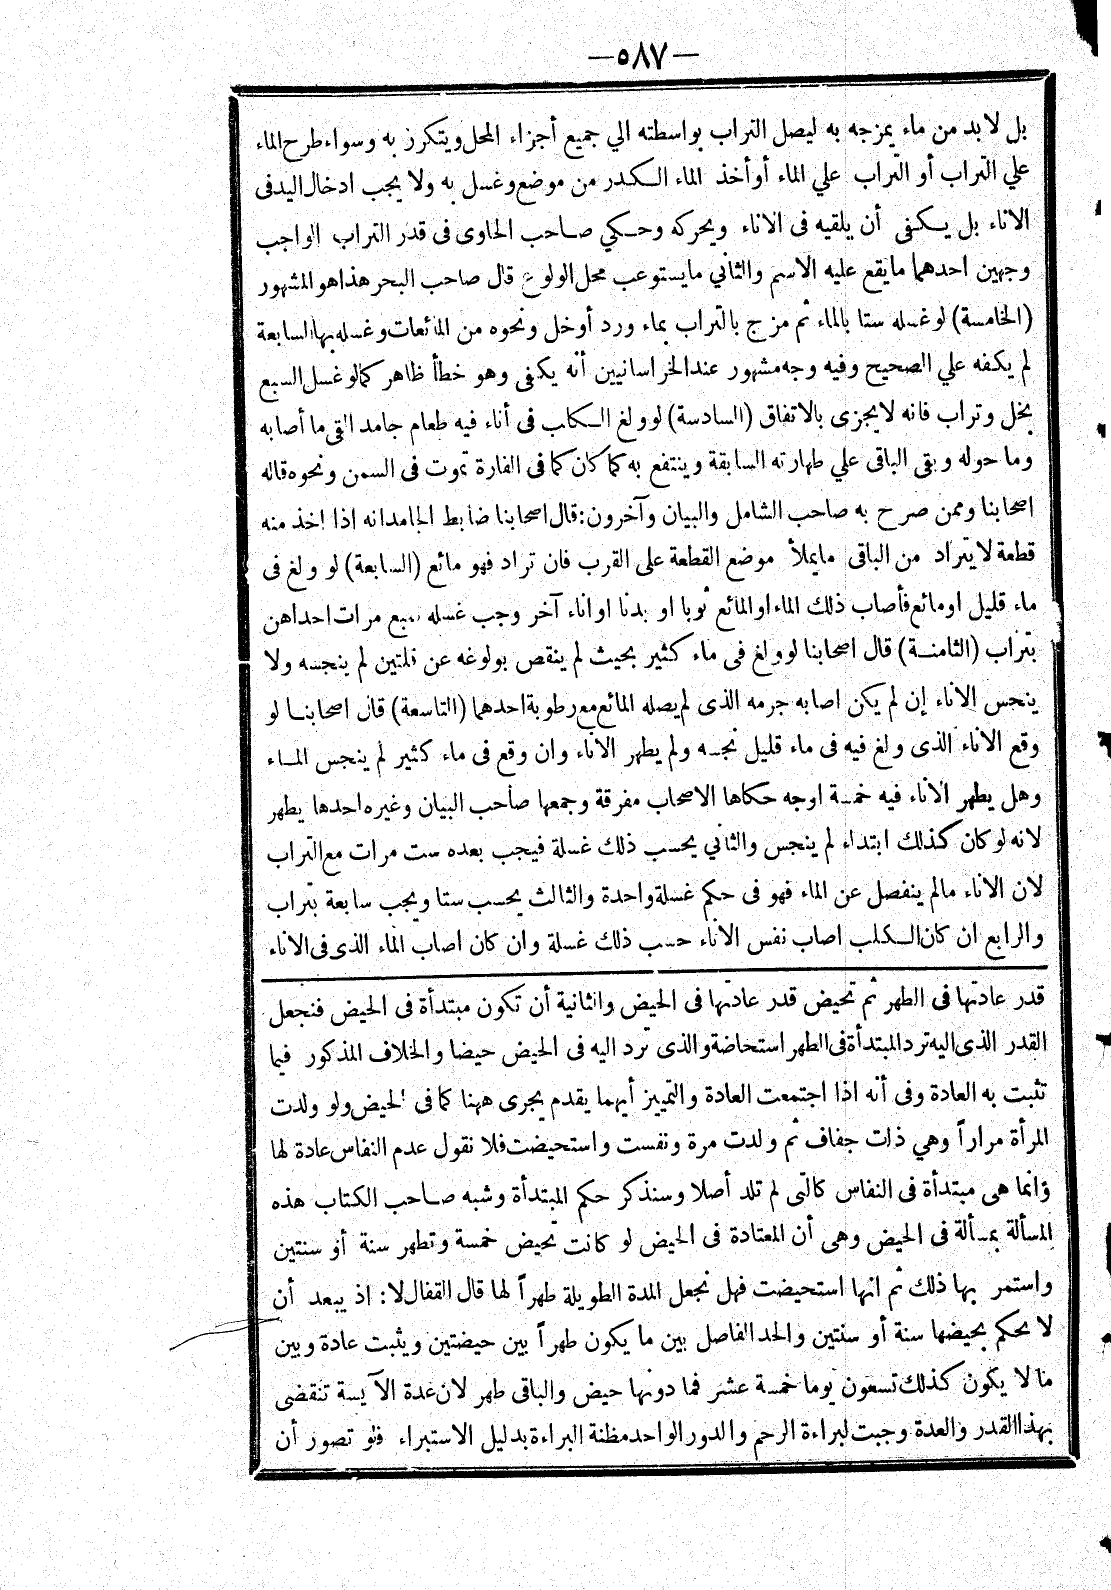 —٥٨٧—
بل لابد من ماء يمزجه به ليصل التراب بواسطته الي جميع أجزاء المحل ويتكرر به وسواء طرح الماء
علي التراب أو التراب علي الماء أو أخذ الماء الكدر من موضع وغسل به ولا يجب ادخال اليد فى
الاناء بل يكفى أن يلقيه فى الاناء ويحركه وحكي صاحب الحاوى فى قدر التراب الواجب
وجهين احدهما ما يقع عليه الاسم والثاني ما يستوعب محل الولوغ قال صاحب البحر هذا هو المشهور
(الخامسة) لو غسله ستا بالماء ثم مزج بالتراب بماء ورد أو خل ونحوه من المائعات وغسله بها السابعة
لم يكفه علي الصحيح وفيه وجه مشهور عند الخراسانيين أنه يكفى وهو خطأ ظاهر كما لو غسل السبع
بخل وتراب فانه لا يجزى بالاتفاق (السادسة) لو ولغ الكلب فى أناء فيه طعام جامد القى ما أصابه
وما حوله وبقى الباقى علي طهارته السابقة وينتفع به كما كان كما فى الفارة تموت فى السمن ونحوه قاله
اصحابنا وممن صرح به صاحب الشامل والبيان وآخرون: قال اصحابنا ضابط الجامد انه اذا اخذ منه
قطعة لا يتراد من الباقى ما يملأ موضع القطعة على القرب فان تراد فهو مائع (السابعة) لو ولغ فى
ماء قليل او مائع فأصاب ذلك الماء او المائع ثوبا او بدنا او اناء آخر وجب غسله سبع مرات احداهن
بتراب (الثامنة) قال اصحابنا لو ولغ فى ماء كثير بحيث لم ينقص بولوغه عن قلتين لم ينجسه ولا
ينجس الاناء إن لم يكن اصابه جرمه الذى لم يصله المائع مع رطوبة احدهما (التاسعة) قال اصحابنا لو
وقع الاناء الذى ولغ فيه فى ماء قليل نجسه ولم يطهر الاناء وان وقع فى ماء كثير لم ينجس الماء
وهل يطهر الاناء فيه خمسة اوجه حكاها الاصحاب مفرقة وجمعها صاحب البيان وغيره احدها يطهر
لانه لو كان كذلك ابتداء لم ينجس والثاني يحسب ذلك غسلة فيجب بعده ست مرات مع التراب
لان الاناء مالم ينفصل عن الماء فهو فى حكم غسلة واحدة والثالث يحسب ستا ويجب سابعة بتراب
والرابع ان كان الكلب اصاب نفس الاناء حسب ذلك غسلة وان كان اصاب الماء الذى فى الاناء
قدر عادتها فى الطهر ثم تحيض قدر عادتها فى الحيض والثانية أن تكون مبتدأة فى الحيض فنجعل
القدر الذى اليه ترد المبتدأة فى الطهر استحاضة والذى ترد اليه فى الحيض حيضا والخلاف المذكور فيما
تثبت به العادة وفى أنه اذا اجتمعت العادة والتمييز أيهما يقدم يجرى ههنا كما فى الحيض ولو ولدت
المرأة مراراً وهي ذات جفاف ثم ولدت مرة ونفست واستحيضت فلا نقول عدم النفاس عادة لها
وانما هى مبتدأة فى النفاس كالتى لم تلد أصلا وسنذكر حكم المبتدأة وشبه صاحب الكتاب هذه
المسألة بمسألة فى الحيض وهى أن المعتادة فى الحيض لو كانت تحيض خمسة وتطهر سنة أو سنتين
واستمر بها ذلك ثم انها استحيضت فهل نجعل المدة الطويلة طهراً لها قال القفال لا: اذ يبعد أن
لا يحكم بحيضها سنة أو سنتين والحد الفاصل بين ما يكون طهراً بين حيضتين ويثبت عادة وبين
ما لا يكون كذلك تسعون يوما خمسة عشر فما دونها حيض والباقى طهر لان عدة الآيسة تنقضى
بهذا القدر والعدة وجبت لبراءة الرحم والدور الواحد مظنة البراءة بدليل الاستبراء فلو تصور أن